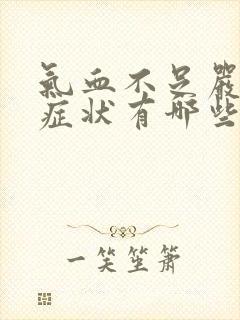 氣血不足嚴
症狀有哪些
一笑坐蕭